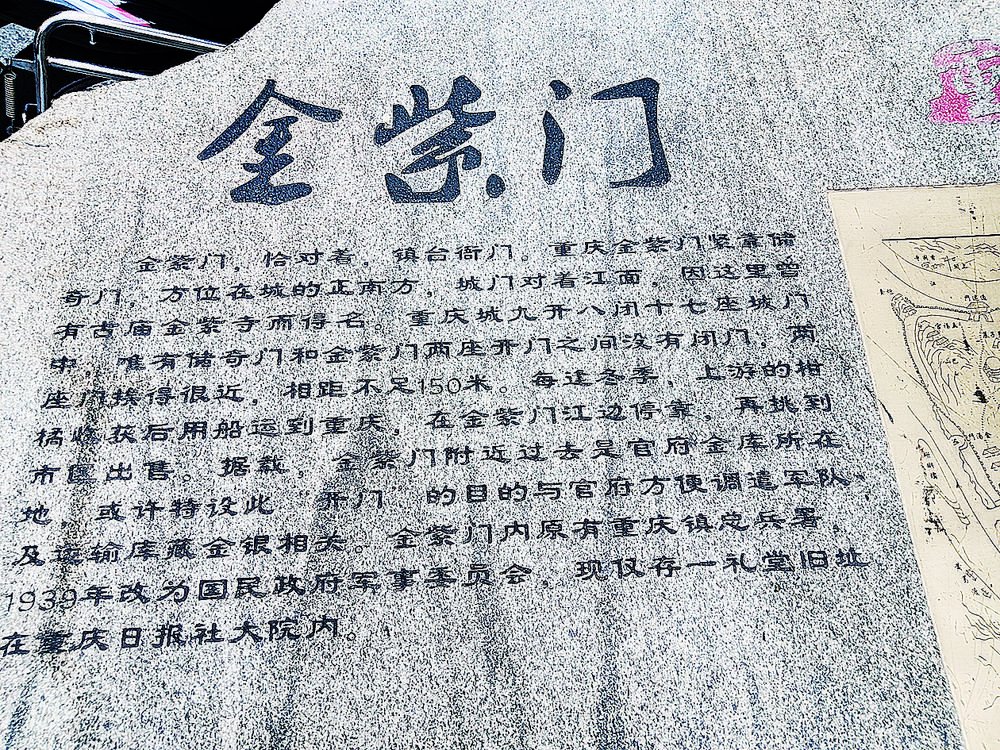 金紫门
金紫门，恰对着，镇台衙门。重庆金紫门紧靠储
奇门，方位在城的正南方，城门对着江面，因这里曾
有古庙金紫寺而得名。重庆城九开八闭十七座城门
中，唯有储奇门和金紫门两座开门之间没有闭门，两
座门挨得很近，相距不足150米。每逢冬季，上游的柑
橘收获后用船运到重庆，在金紫门江边停靠，再挑到
市区出售。据载，金紫门附近过去是官府金库所在
地，或许特设此“开门”的目的与官府方便调遣军队，
及运输库藏金银相关。金紫门内原有重庆镇总兵署，
1939年改为国民政府军事委员会，现仅存一礼堂旧址
在重庆日报社大院内。